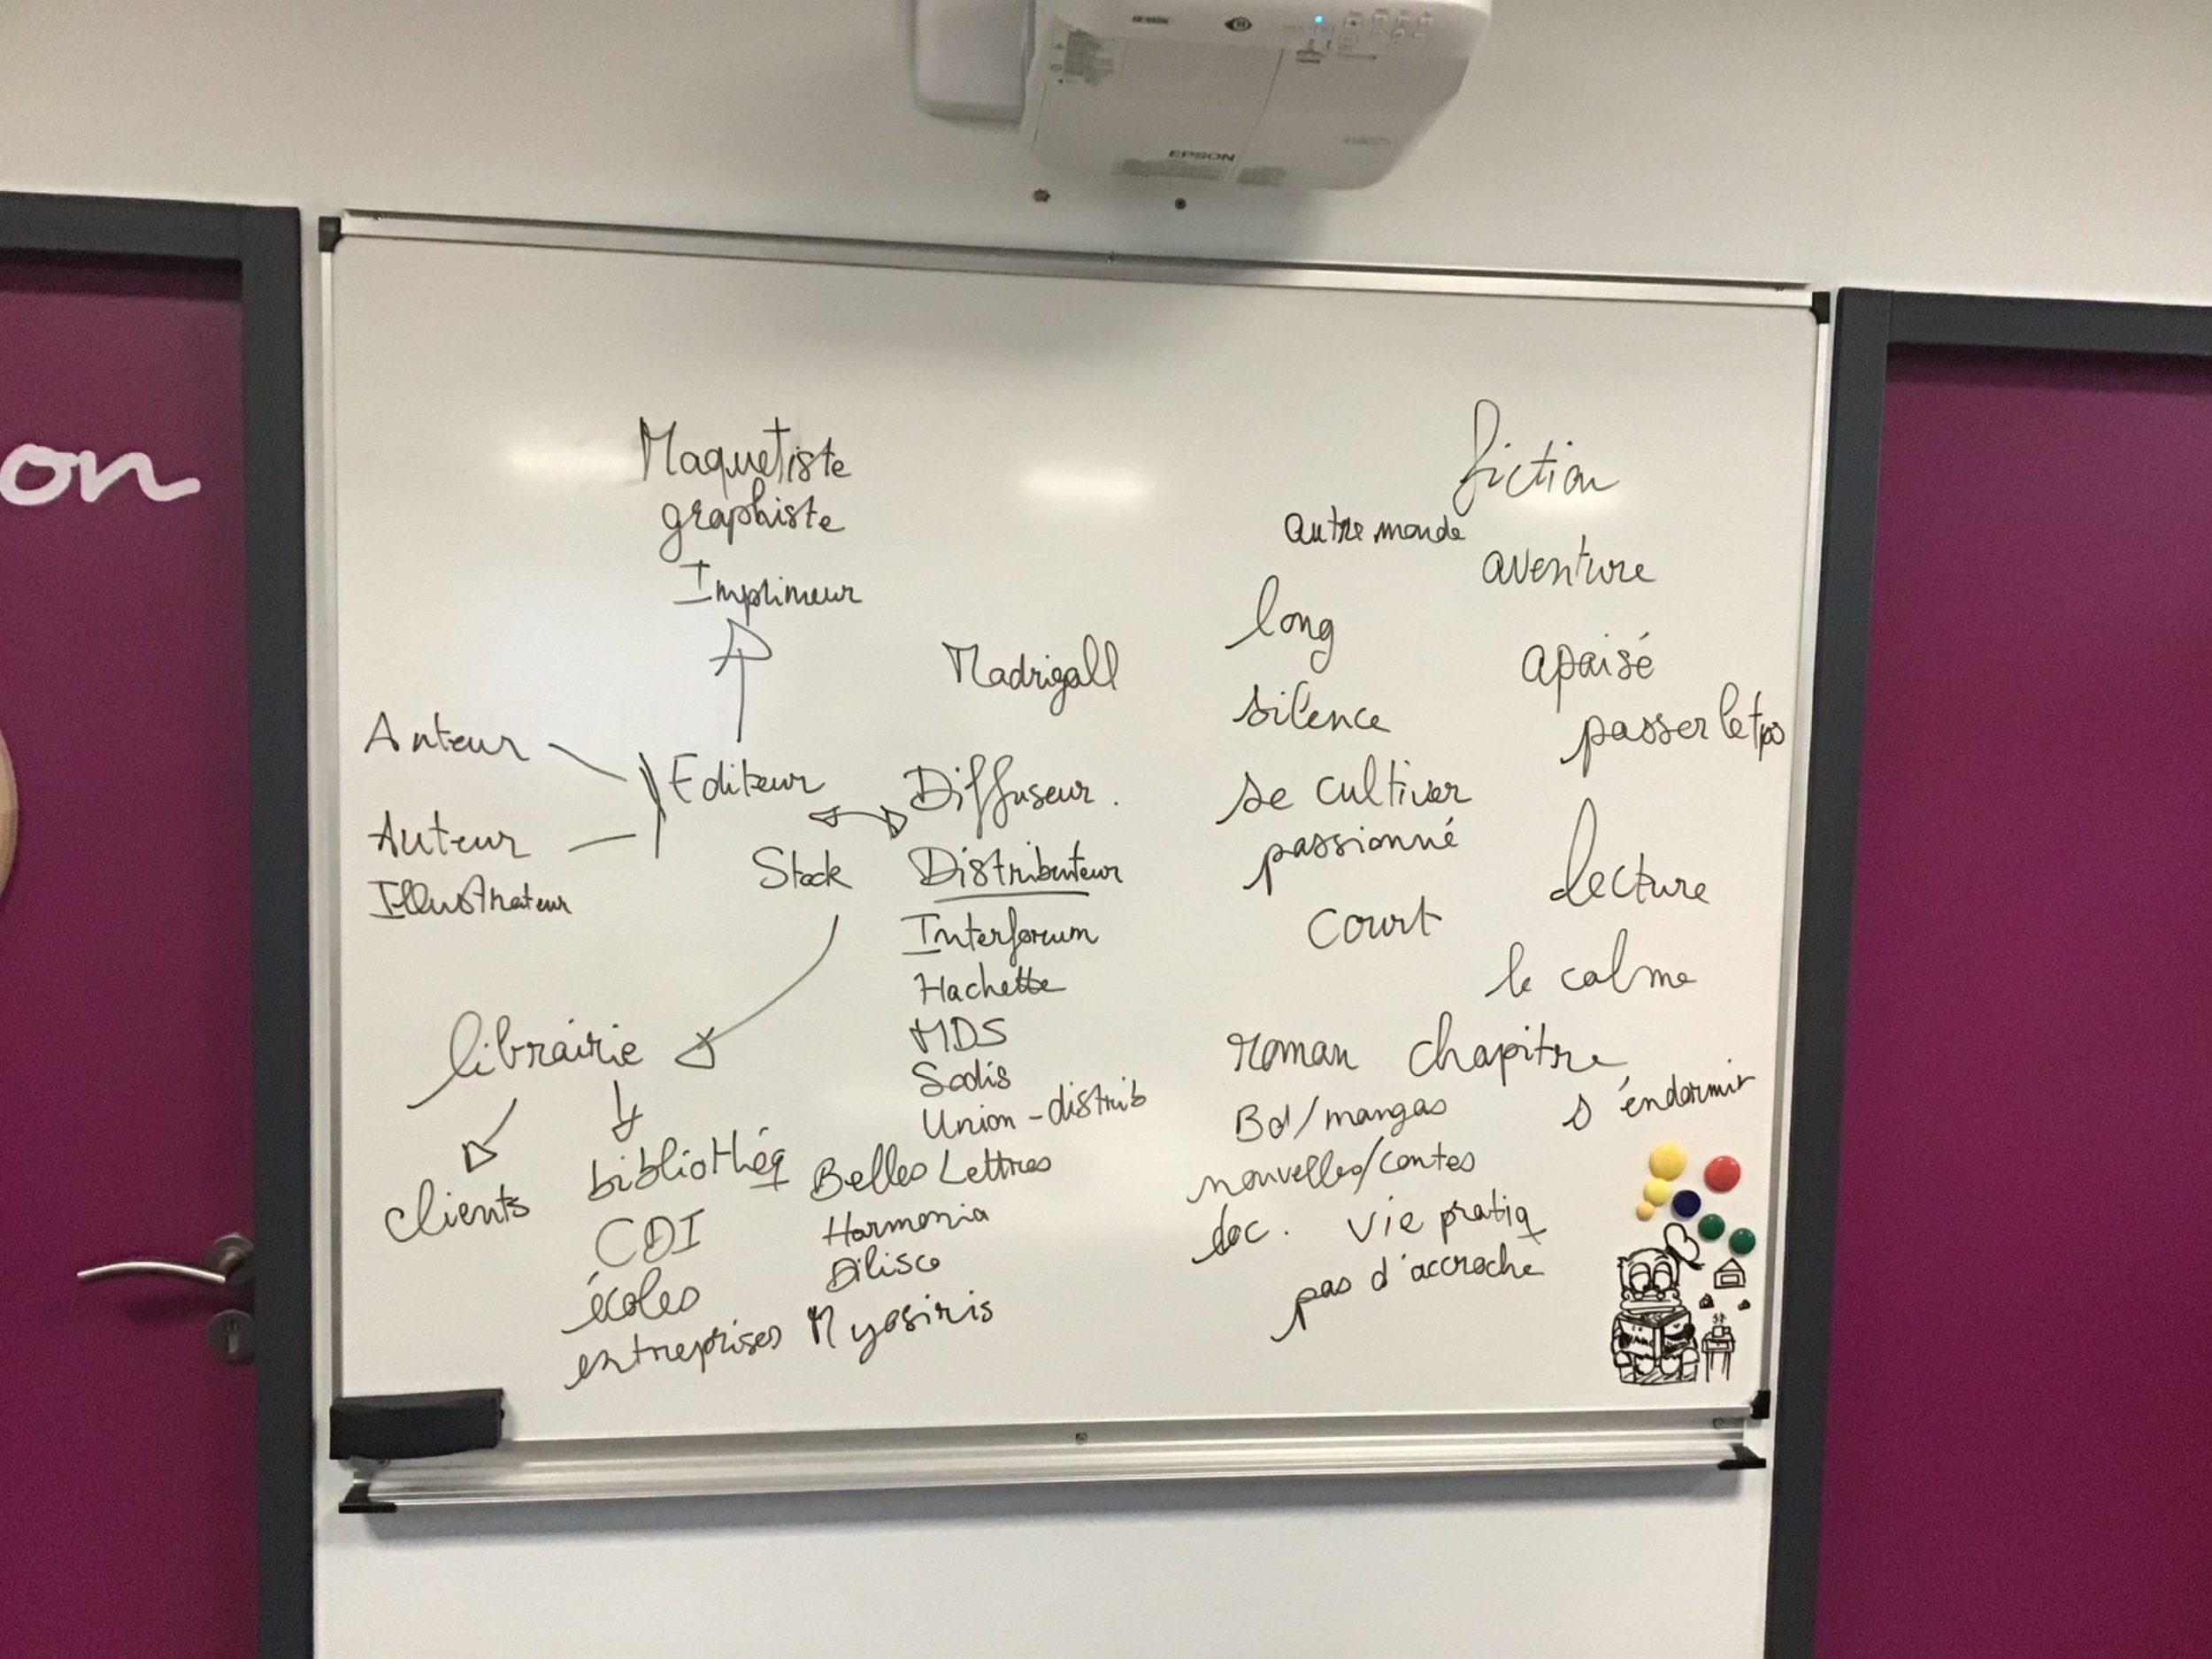 EPSON
on
Maquetiste
graphiste
Imprimeur
Madrigall
Auteur
Editeur
Diffuseur.
Auteur
Illustrateur
Stock
Distributeur
Interforum
Hachette
MDS
Sodis
Union-distrib
Belles Lettres
Harmonia
Dilisco
Myosiris
librairie
clients
bibliothéq
CDI
écoles
entreprises
fiction
autre monde
aventure
long
apaisé
silence
passer le tps
se cultiver
passionné
lecture
court
le calme
roman chapitre
s'endormir
Bd/mangas
nouvelles/contes
doc. vie pratiq
pas d'accroche